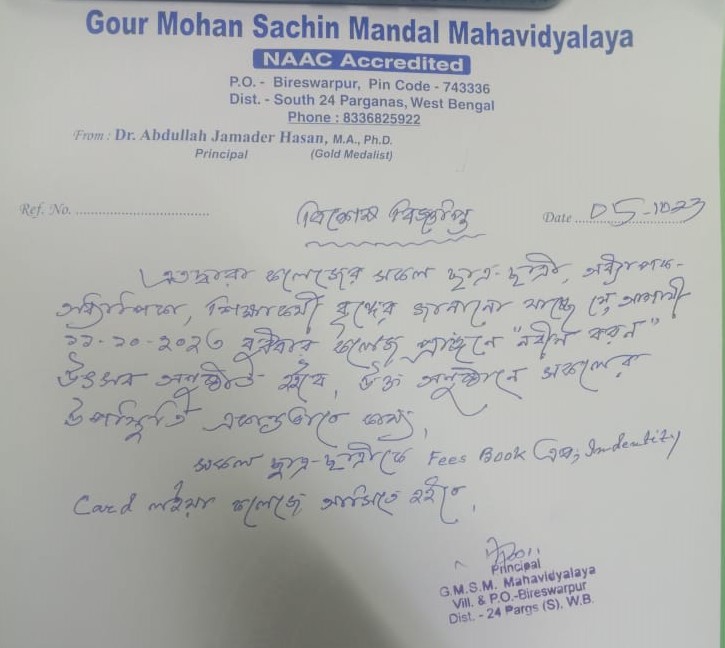 Gour Mohan Sachin Mandal Mahavidyalaya
NAAC Accredited
P.O. - Bireswarpur, Pin Code - 743336
Dist. - South 24 Parganas, West Bengal
Phone : 8336825922
From : Dr. Abdullah Jamader Hasan, M.A., Ph.D.
Principal (Gold Medalist)
Ref. No. ....................................
বিশেষ বিজ্ঞপ্তি
Date 05-10-23
এতদ্বারা কলেজের সকল ছাত্র-ছাত্রী, অধ্যাপক-
অধ্যাপিকা, শিক্ষাকর্মী বৃন্দের জানানো যাচ্ছে যে, আগামী
১১-১০-২০২৩ বুধবার কলেজ প্রাঙ্গনে "নবীন বরন"
উৎসব অনুষ্ঠিত হইবে, উক্ত অনুষ্ঠানে সকলের
উপস্থিতি একান্তভাবে কাম্য,
সকল ছাত্র-ছাত্রীকে Fees Book এবং Indentity
Card লইয়া কলেজে আসিতে হইবে,
Principal
G.M.S.M. Mahavidyalaya
Vill. & P.O.-Bireswarpur
Dist. - 24 Pargs (S), W.B.